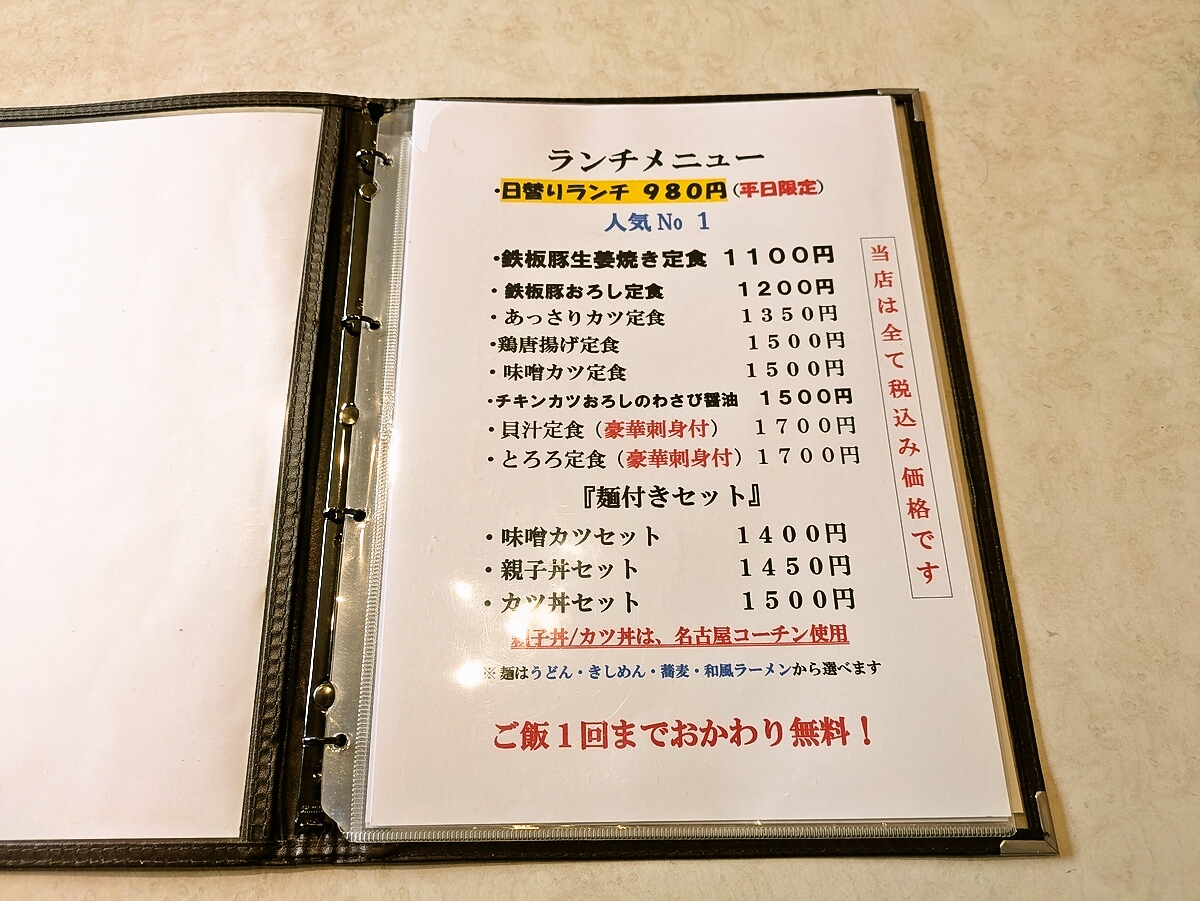 ランチメニュー
・日替りランチ ９８０円(平日限定)
人気№ １
・鉄板豚生姜焼き定食 １１００円
・鉄板豚おろし定食 １２００円
・あっさりカツ定食 １３５０円
・鶏唐揚げ定食 １５００円
・味噌カツ定食 １５００円
・チキンカツおろしのわさび醤油 １５００円
・貝汁定食（豪華刺身付） １７００円
・とろろ定食（豪華刺身付）１７００円
『麺付きセット』
・味噌カツセット １４００円
・親子丼セット １４５０円
・カツ丼セット １５００円
親子丼/カツ丼は、名古屋コーチン使用
※麺はうどん・きしめん・蕎麦・和風ラーメンから選べます
ご飯１回までおかわり無料！
当店は全て税込み価格です